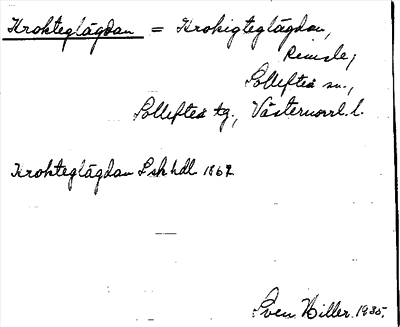 Krokteglägdan = Krokigteglägdan,
Remsle,
Sollefteå sn.,
Sollefteå tg., Västernorrl. l.
Krokteglägdan Lskhdl 1867
Sven Hiller. 1935.